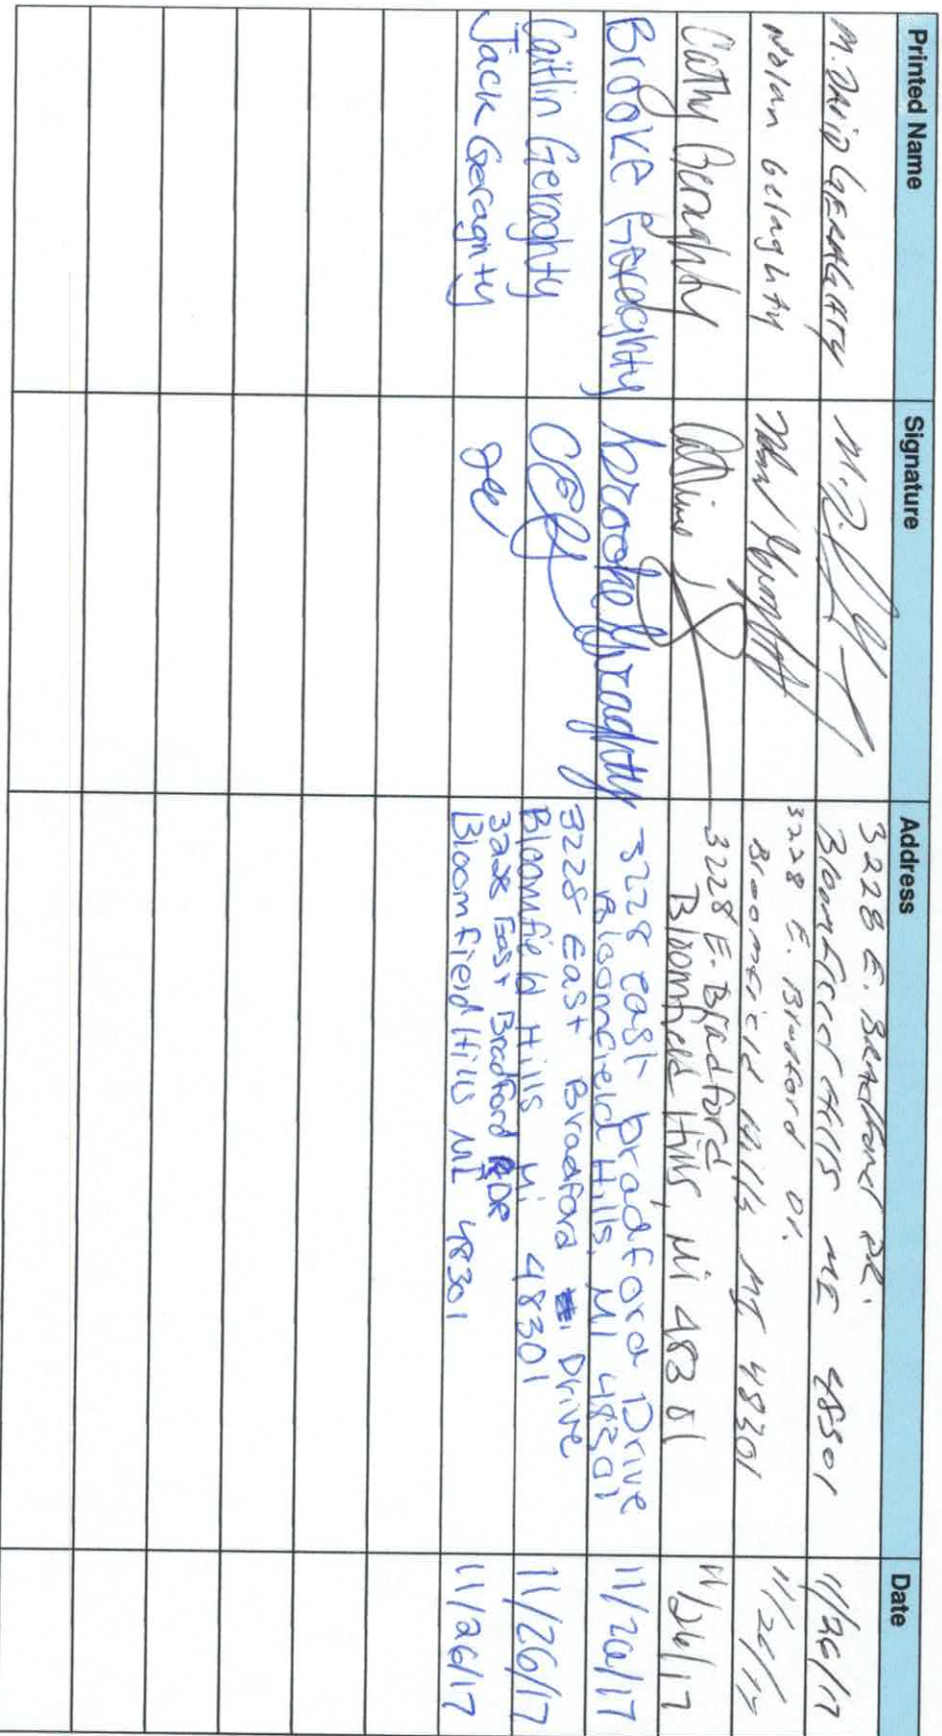 Printed Name Signature Address Date
M. DAVID GERAGHTY 3228 E. Bradford DR. 11/26/17
Bloomfield Hills MI 48301
Nolan Geraghty 3228 E. Bradford Dr. 11/26/17
Bloomfield Hills MI 48301
Cathy Geraghty 3228 E. Bradford 11/26/17
Bloomfield Hills, Mi 48301
Brooke Geraghty brooke Geraghty 3228 east bradford Drive 11/26/17
Bloomfield Hills, MI 48301
Caitlin Geraghty 3228 East Bradford Drive 11/26/17
Bloomfield Hills Mi. 48301
Jack Geraghty 3228 East Bradford DR 11/26/17
Bloomfield Hills MI 48301